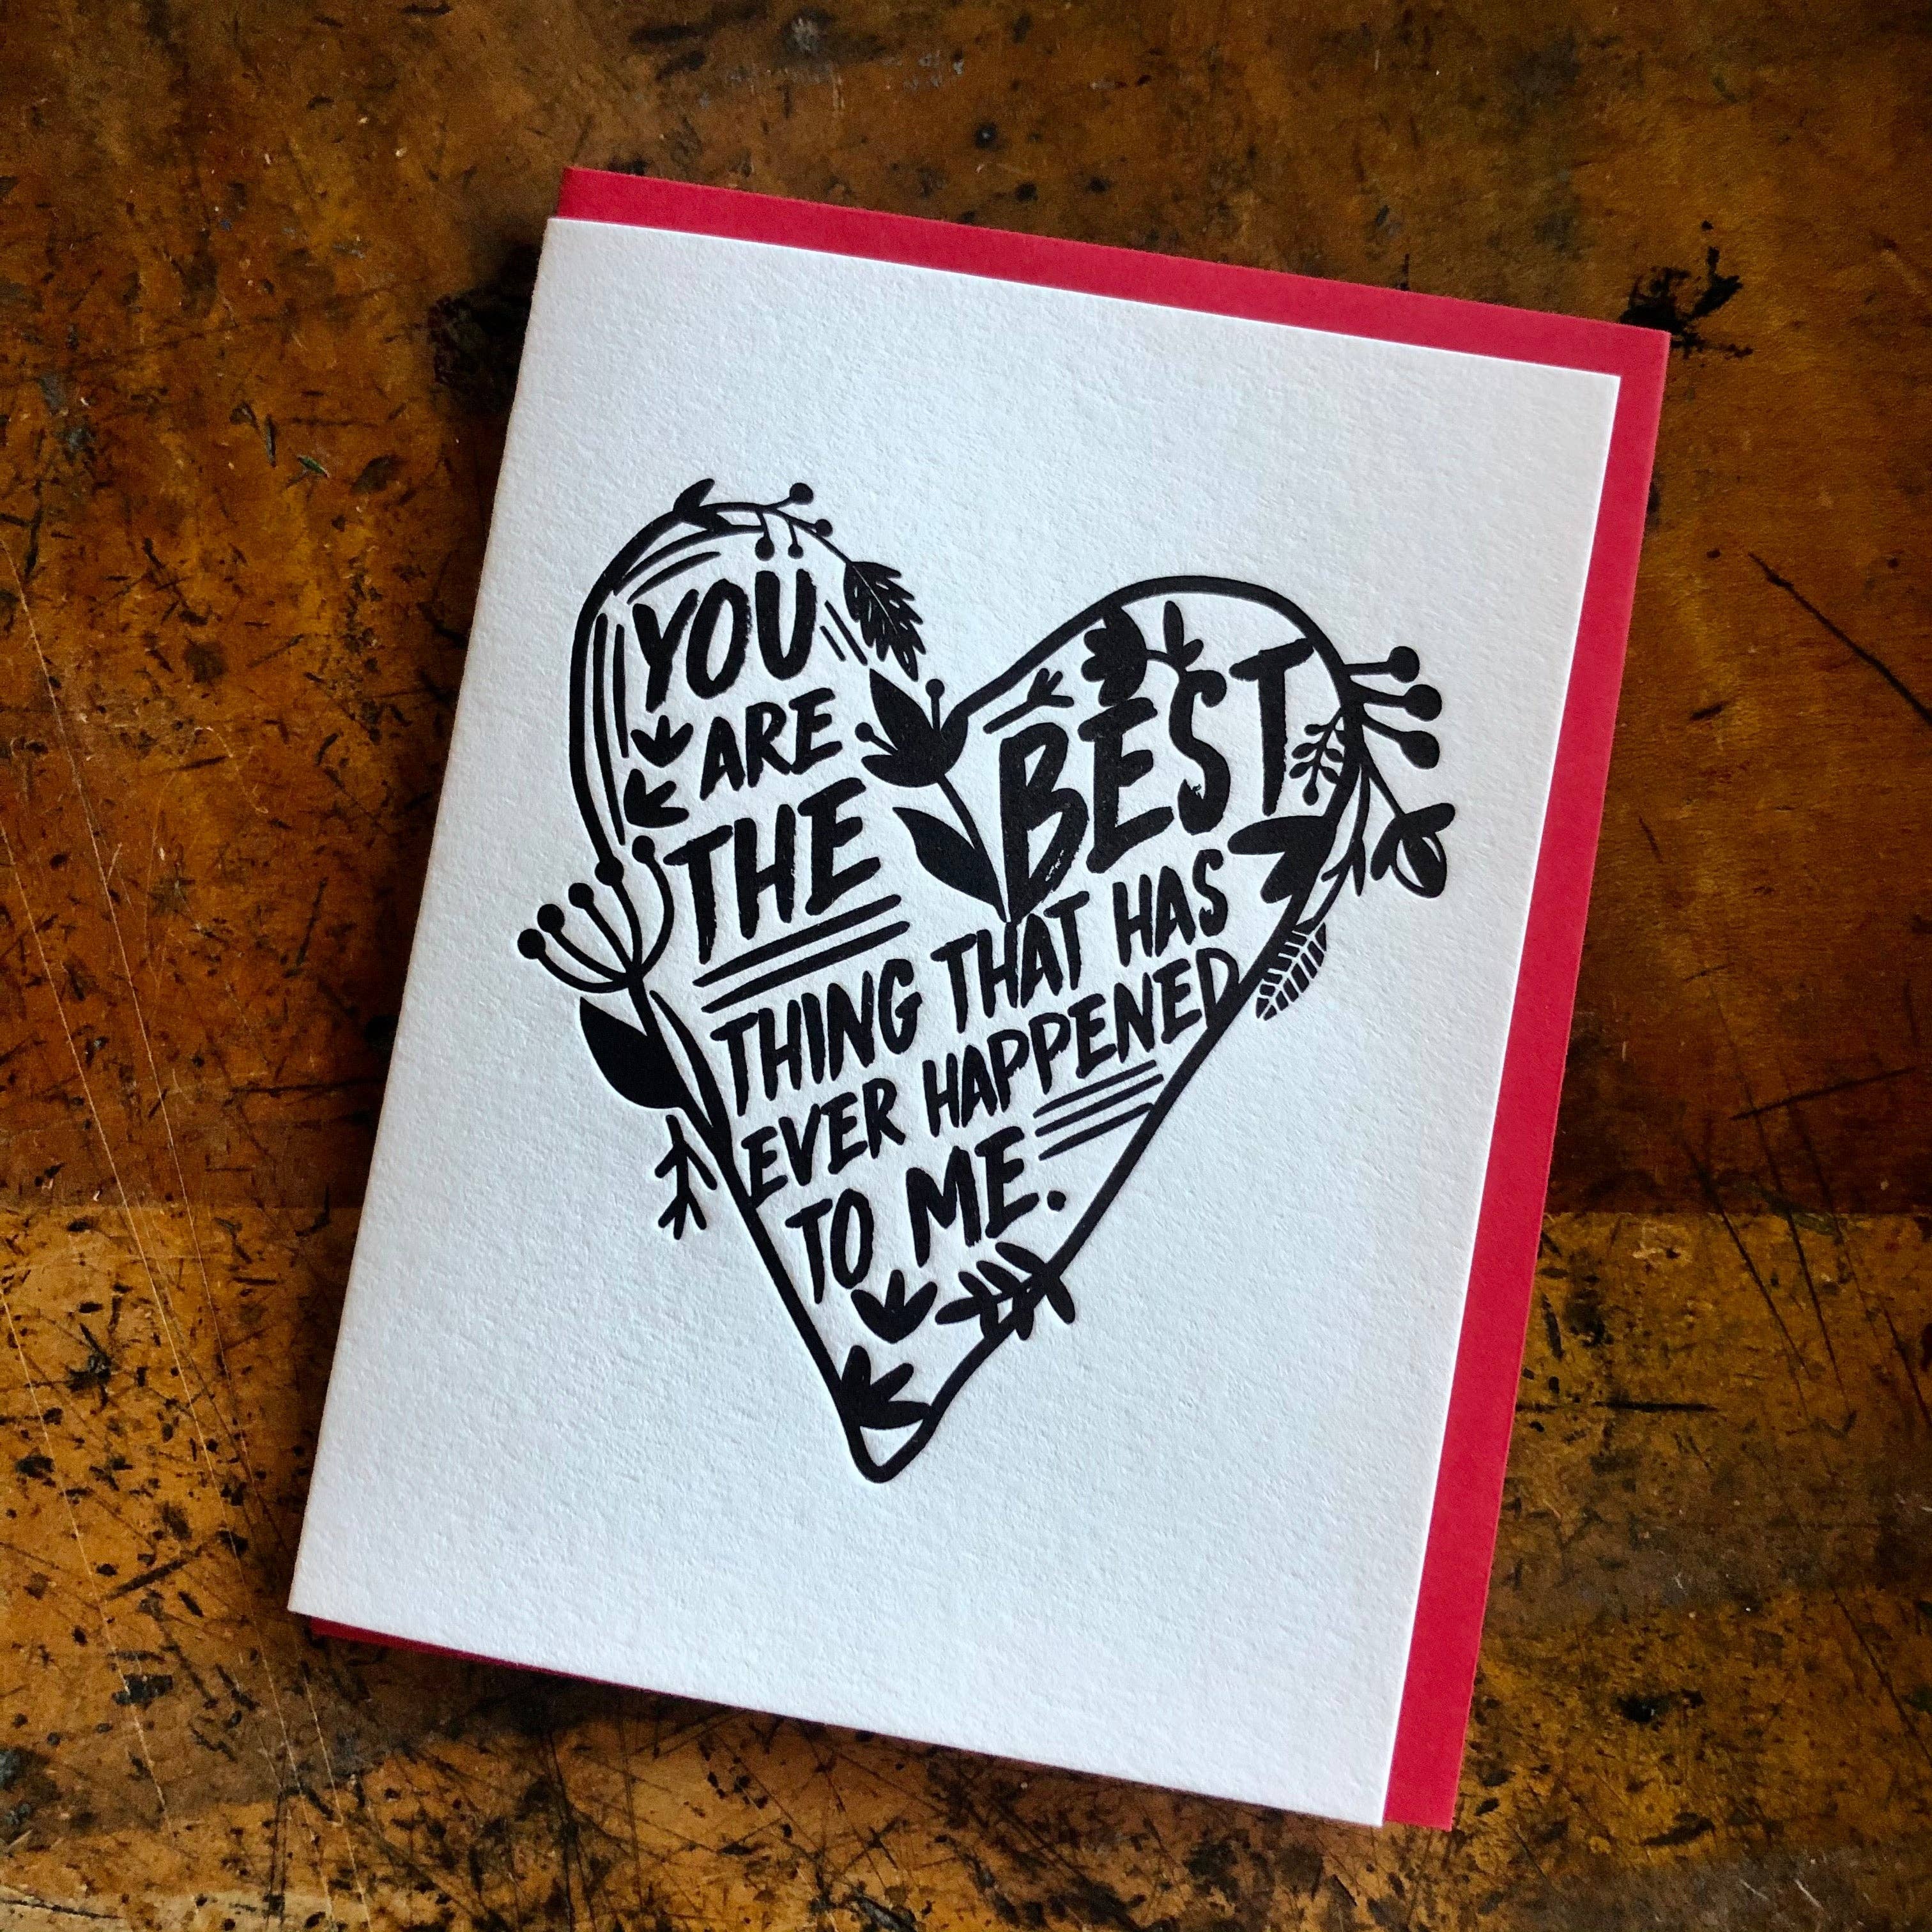 YOU
ARE
THE
BEST
THING THAT HAS
EVER HAPPENED
TO ME.